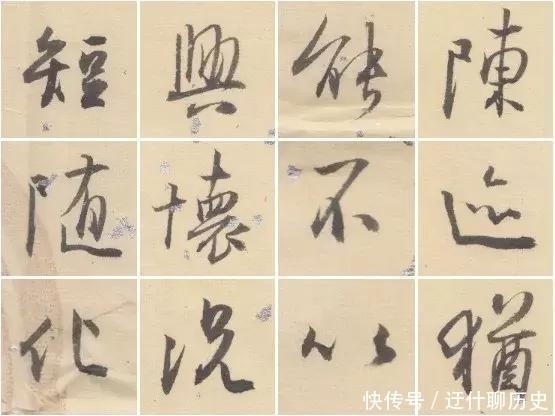 短興能陳
随懷不迹
化况以猶
快传号 / 迂什聊历史